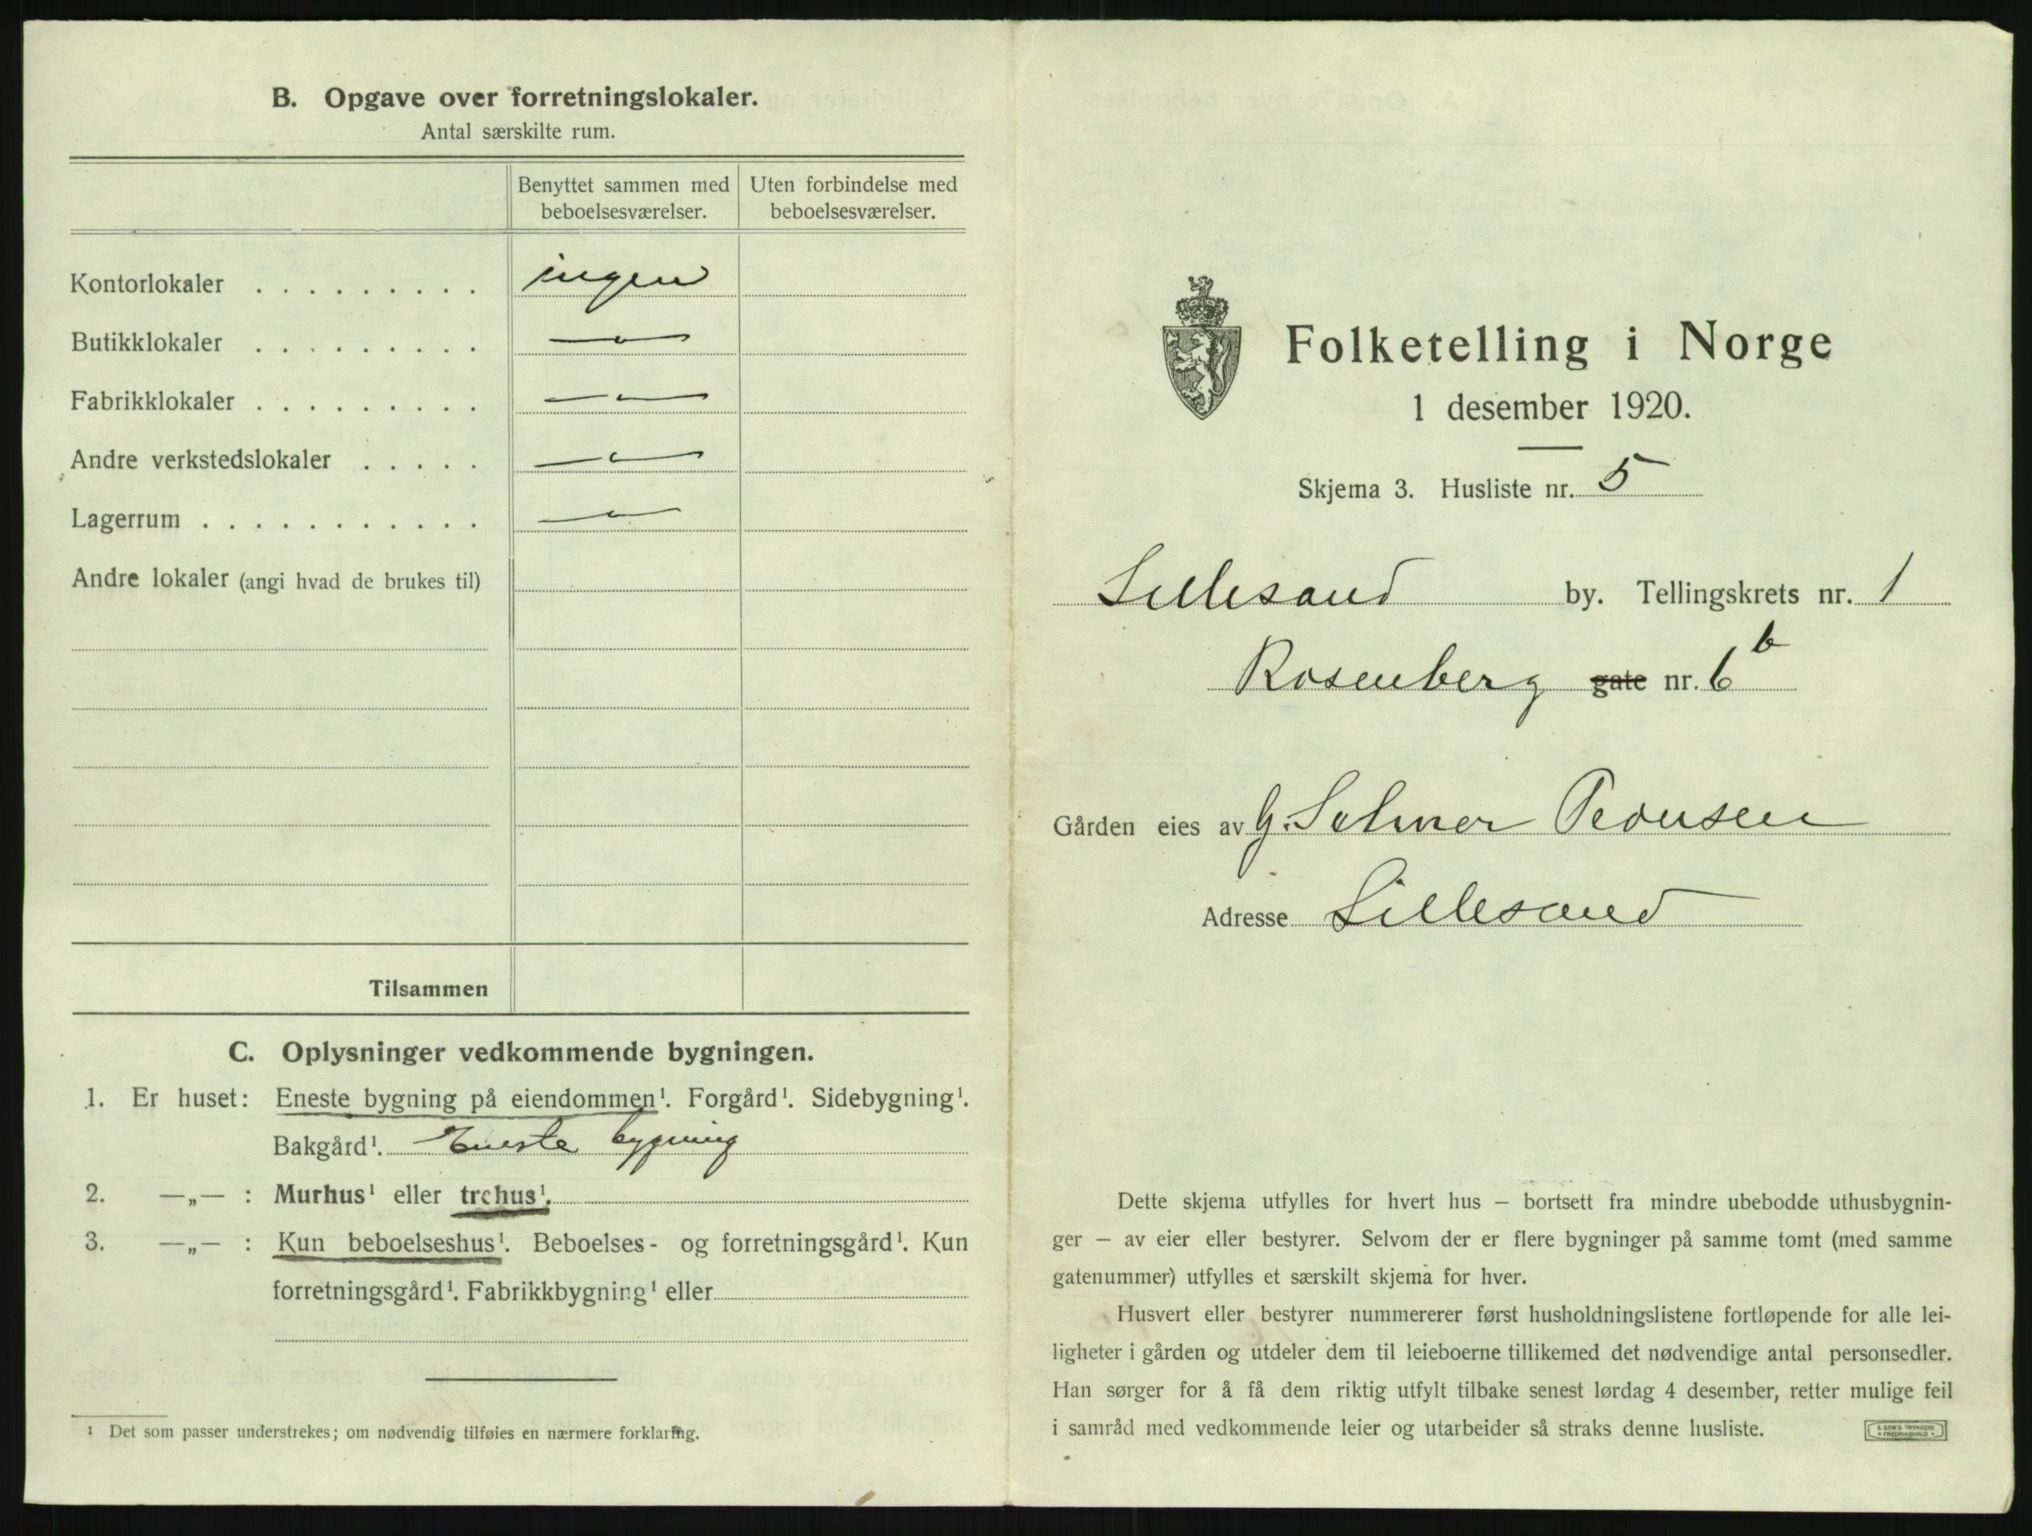 B. Opgave over forretningslokaler.
Antal særskilte rum.
Benyttet sammen med beboelsesværelser.
Uten forbindelse med beboelsesværelser.
Kontorlokaler . . . . . . . . . ingen
Butikklokaler . . . . . . . . . —"—
Fabrikklokaler . . . . . . . . . —"—
Andre verkstedslokaler . . . . . —"—
Lagerrum . . . . . . . . . . . —"—
Andre lokaler (angi hvad de brukes til)
Tilsammen
C. Oplysninger vedkommende bygningen.
1. Er huset: Eneste bygning på eiendommen¹. Forgård¹. Sidebygning¹.
Bakgård¹. Eneste bygning
2. —„— : Murhus¹ eller trehus¹.
3. —„— : Kun beboelseshus¹. Beboelses- og forretningsgård¹. Kun
forretningsgård¹. Fabrikkbygning¹ eller
¹ Det som passer understrekes; om nødvendig tilføies en nærmere forklaring.
Folketelling i Norge
1 desember 1920.
Skjema 3. Husliste nr. 5
Lillesand by. Tellingskrets nr. 1
Rosenberg gate nr. 6 b
Gården eies av G. Solmer Pedersen
Adresse Lillesand
Dette skjema utfylles for hvert hus – bortsett fra mindre ubebodde uthusbygnin-
ger – av eier eller bestyrer. Selvom der er flere bygninger på samme tomt (med samme
gatenummer) utfylles et særskilt skjema for hver.
Husvert eller bestyrer nummererer først husholdningslistene fortløpende for alle lei-
ligheter i gården og utdeler dem til leieboerne tillikemed det nødvendige antal personsedler.
Han sørger for å få dem riktig utfylt tilbake senest lørdag 4 desember, retter mulige feil
i samråd med vedkommende leier og utarbeider så straks denne husliste.